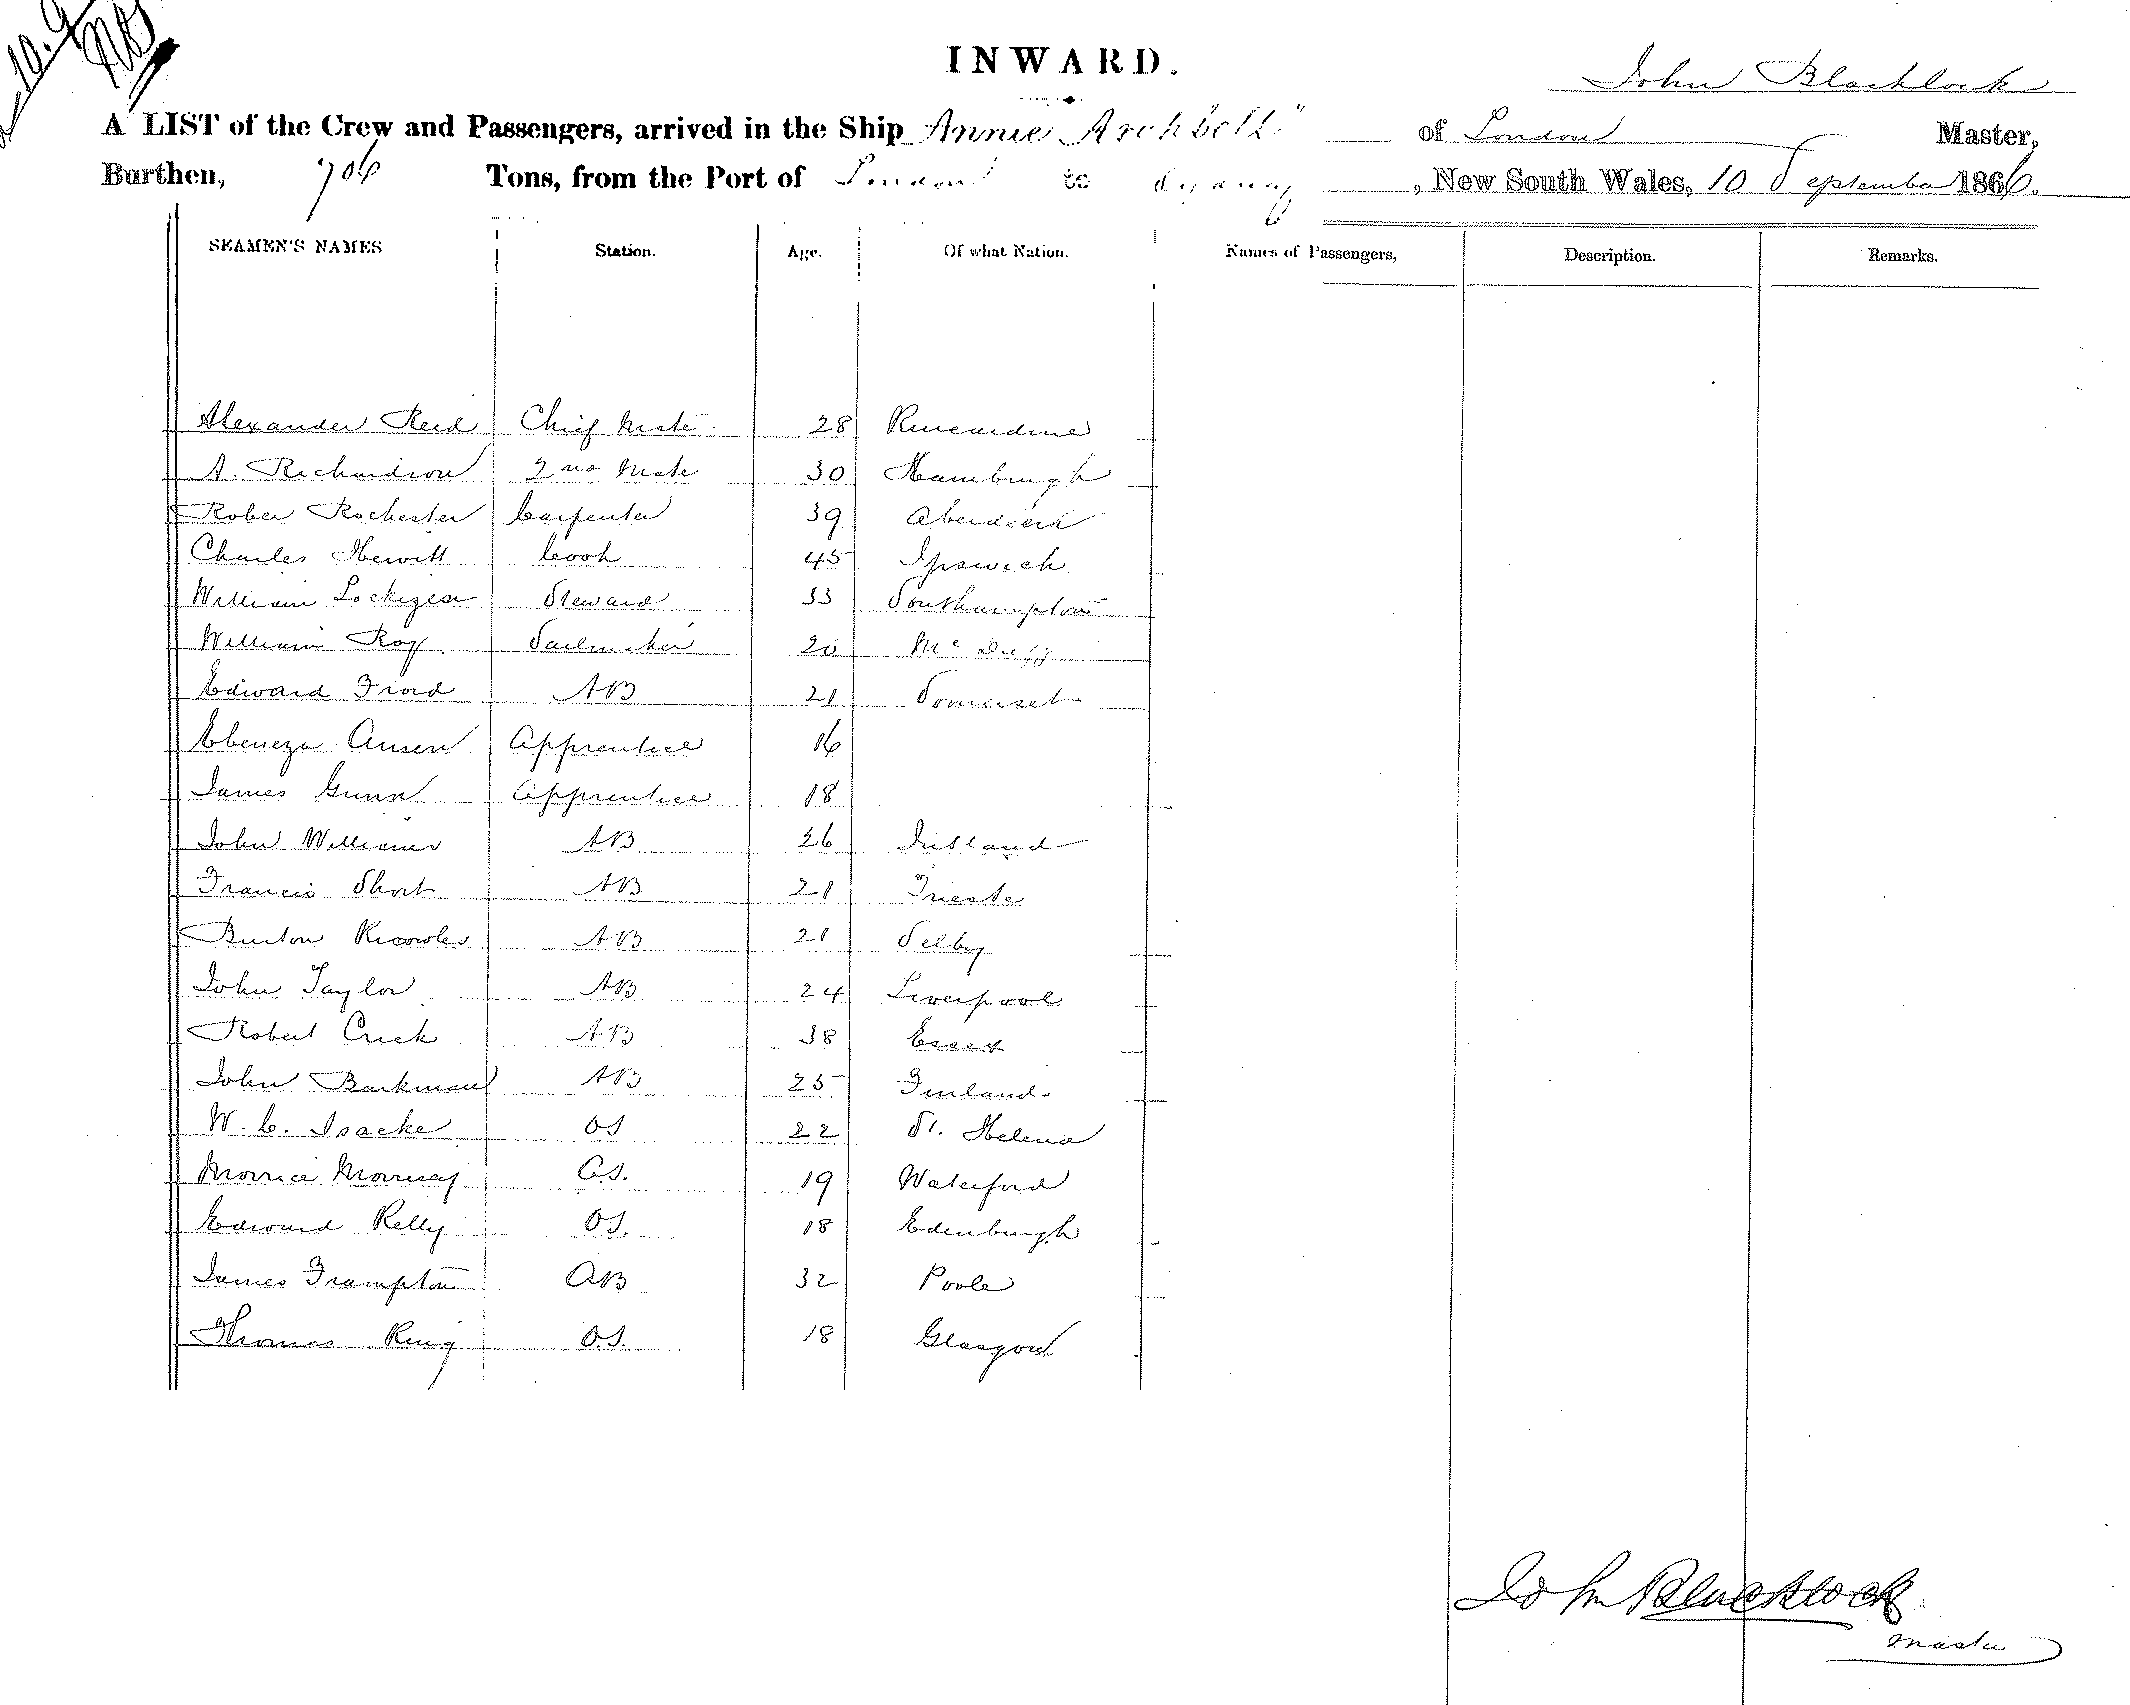 10.9
INWARD.
John Blacklock
A LIST of the Crew and Passengers, arrived in the Ship "Annie Archbell" of London Master,
Burthen, 706 Tons, from the Port of London to Sydney, New South Wales, 10 September 1866.
SEAMEN'S NAMES Station. Age. Of what Nation. Names of Passengers, Description. Remarks.
Alexander Reid Chief Mate 28 Kincardine
A. Richardson 2nd Mate 30 Hamburgh
Rober Rochester Carpenter 39 Aberdeen
Charles Hewitt Cook 45 Ipswich
William Steward 33 Southampton
William Roy Sailmaker 20 Mc Duff
Edward Frord AB 21 Somerset
Ebenezer Apprentice 16
James Gunn Apprentice 18
John Williams AB 26 Jutland
Francis Short AB 21 Trieste
Burton Knowles AB 21 Selby
John Taylor AB 24 Liverpool
Robert Crick AB 38 Essex
John Barkman AB 25 Finland
W. C. Isacke OS 22 St. Helena
Morrice Morrisey O.S. 19 Waterford
Edward Kelly O.S. 18 Edenburgh
James Frampton AB 32 Poole
Thomas King O.S. 18 Glasgow
John Blacklock
Master